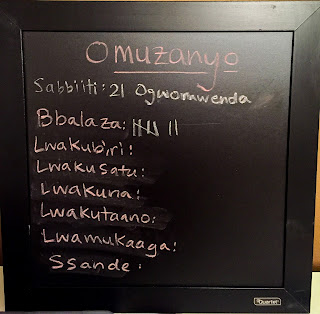 Omuzanyo
Sabbiiti: 21 Ogwomwenda
Bbalaza: 𝍸 ||
Lwakubiri:
Lwakusatu:
Lwakuna:
Lwakutaano:
Lwamukaaga:
Ssande:
Quartet